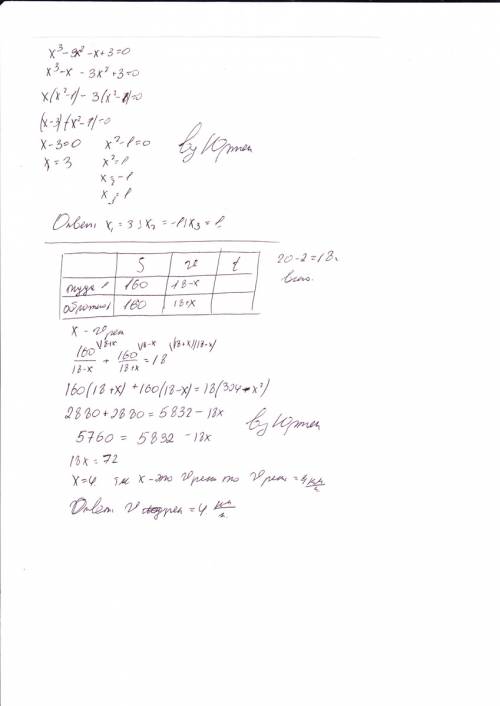 x³-3x²-x+3=0
x³-x-3x²+3=0
x(x²-1)-3(x²-1)=0
(x-3)(x²-1)=0
x-3=0 x²-1=0
x₁=3 x²=1
x₂=-1
x₃=1
by Юрмен
Ответ: x₁=3; x₂=-1; x₃=1.
S v t
туда 160 18-x
обратно 160 18+x
20-2=18ч
всего.
x - v реки
160/(18-x) \18+x + 160/(18+x) \18-x = 18 \(18+x)(18-x)
160(18+x)+160(18-x)=18(324-x²)
2880+2880=5832-18x
5760=5832-18x
by Юрмен
18x=72
x=4. т.к x-это v реки то v реки=4 км/ч
Ответ v реки=4 км/ч.